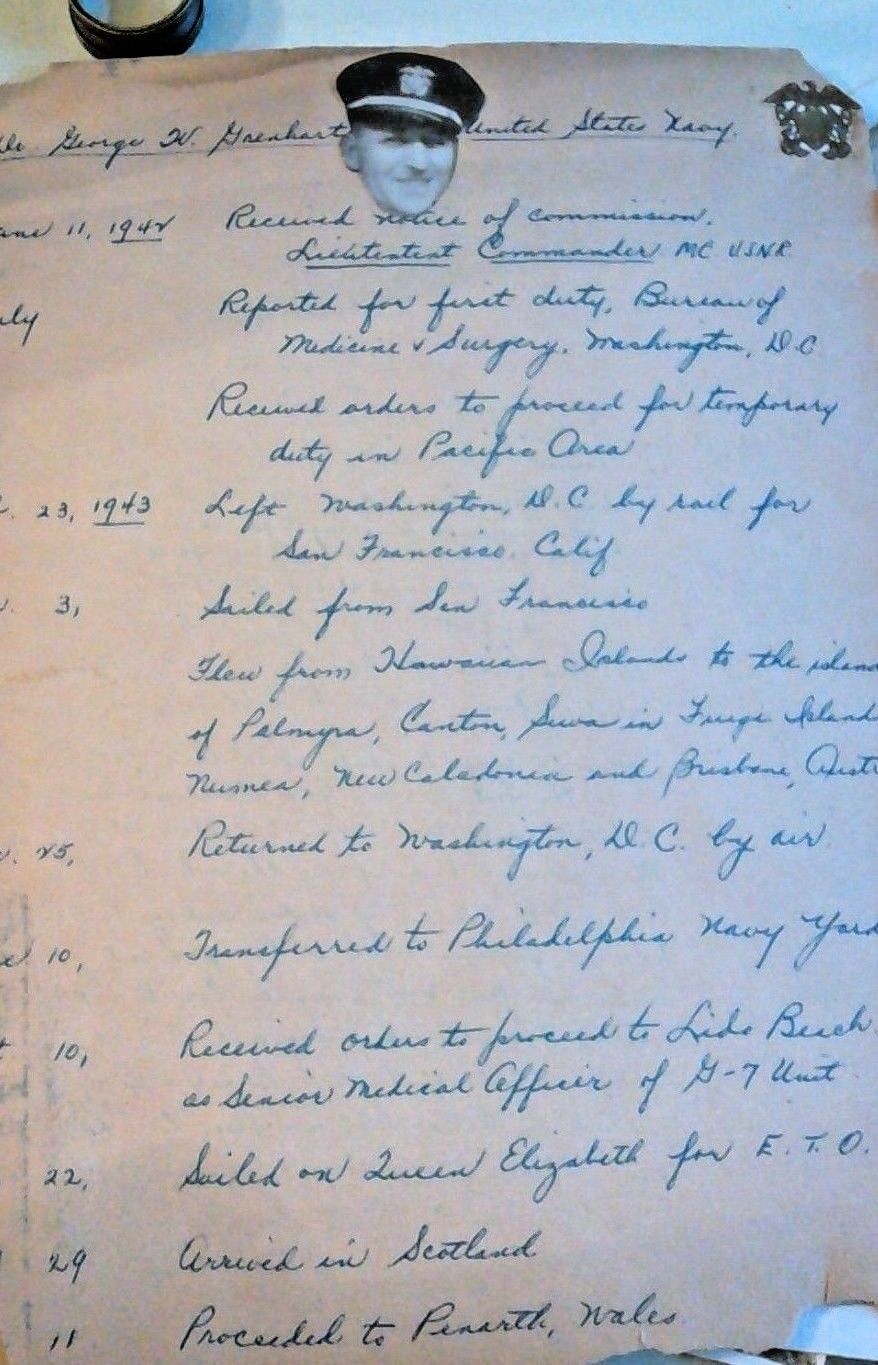 George W. Grenhart United States Navy.
11, 1942 Received notice of commission.
Lieutentent Commander MC USNR.
Reported for first duty, Bureau of
Medicine & Surgery. Washington, D.C
Received orders to proceed for temporary
duty in Pacific Area
23, 1943 Left Washington, D.C by rail for
San Francisco. Calif
3, Sailed from San Francisco
Flew from Hawaiian Islands to the islan
of Palmyra, Canton, Suva in Fuege Island
Numea, New Caledonia and Brisbane, Austr
25, Returned to Washington, D.C. by air
10, Transferred to Philadelphia Navy Yard
10, Received orders to proceed to Lido Beach
as Senior Medical Officer of G-7 Unit
22, Sailed on Queen Elizabeth for E.T.O.
29 Arrived in Scotland
11 Proceeded to Penarth, Wales